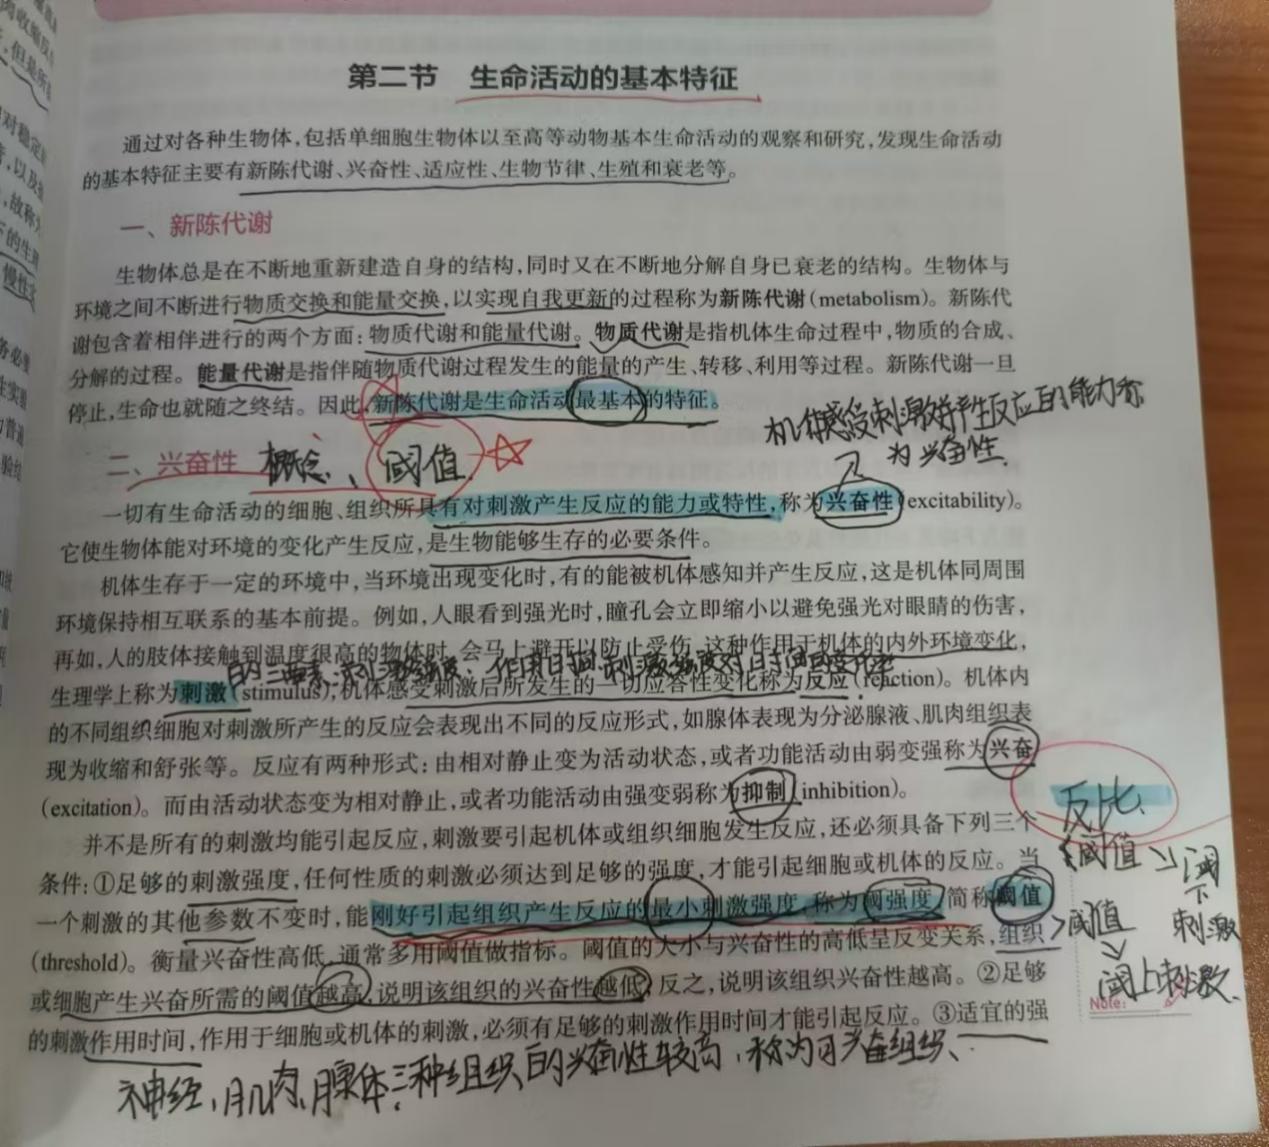 第二节 生命活动的基本特征
通过对各种生物体,包括单细胞生物体以至高等动物基本生命活动的观察和研究,发现生命活动
的基本特征主要有新陈代谢、兴奋性、适应性、生物节律、生殖和衰老等。
一、新陈代谢
生物体总是在不断地重新建造自身的结构,同时又在不断地分解自身已衰老的结构。生物体与
环境之间不断进行物质交换和能量交换,以实现自我更新的过程称为新陈代谢(metabolism)。新陈代
谢包含着相伴进行的两个方面:物质代谢和能量代谢。物质代谢是指机体生命过程中,物质的合成、
分解的过程。能量代谢是指伴随物质代谢过程发生的能量的产生、转移、利用等过程。新陈代谢一旦
停止,生命也就随之终结。因此,新陈代谢是生命活动最基本的特征。
机体感受刺激并产生反应的能力称
为兴奋性
二、兴奋性 概念、阈值
一切有生命活动的细胞、组织所具有对刺激产生反应的能力或特性,称为兴奋性(excitability)。
它使生物体能对环境的变化产生反应,是生物能够生存的必要条件。
机体生存于一定的环境中,当环境出现变化时,有的能被机体感知并产生反应,这是机体同周围
环境保持相互联系的基本前提。例如,人眼看到强光时,瞳孔会立即缩小以避免强光对眼睛的伤害,
再如,人的肢体接触到温度很高的物体时,会马上避开以防止受伤,这种作用于机体的内外环境变化,
的三要素:刺激强度、作用时间、刺激强度对时间的变化率
生理学上称为刺激(stimulus);机体感受刺激后所发生的一切应答性变化称为反应(reaction)。机体内
的不同组织细胞对刺激所产生的反应会表现出不同的反应形式,如腺体表现为分泌腺液、肌肉组织表
现为收缩和舒张等。反应有两种形式:由相对静止变为活动状态,或者功能活动由弱变强称为兴奋
(excitation)。而由活动状态变为相对静止,或者功能活动由强变弱称为抑制(inhibition)。
并不是所有的刺激均能引起反应,刺激要引起机体或组织细胞发生反应,还必须具备下列三个
条件:①足够的刺激强度,任何性质的刺激必须达到足够的强度,才能引起细胞或机体的反应。当
一个刺激的其他参数不变时,能刚好引起组织产生反应的最小刺激强度,称为阈强度,简称阈值
(threshold)。衡量兴奋性高低,通常多用阈值做指标。阈值的大小与兴奋性的高低呈反变关系,组织
或细胞产生兴奋所需的阈值越高,说明该组织的兴奋性越低;反之,说明该组织兴奋性越高。②足够
的刺激作用时间,作用于细胞或机体的刺激,必须有足够的刺激作用时间才能引起反应。③适宜的强
反比
<阈值
阈下
刺激
>阈值
阈上刺激.
Note:
神经、肌肉、腺体三种组织的兴奋性较高,称为可兴奋组织、